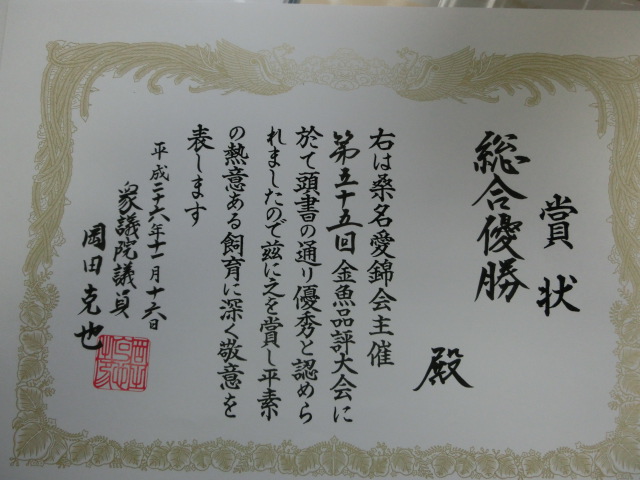 賞状
総合優勝
殿
右は桑名愛錦会主催
第五十五回金魚品評大会に
於て頭書の通り優秀と認めら
れましたので茲に之を賞し平素
の熱意ある飼育に深く敬意を
表します
平成二十六年十一月十六日
衆議院議員
岡田克也